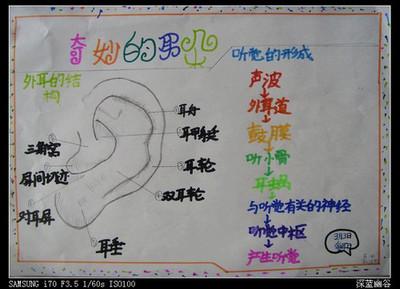 奇妙的耳朵
外耳的结
构
听觉的形成
声波
外耳道
鼓膜
听小骨
耳蜗
与听觉有关的神经
听觉中枢
产生听觉
耳舟
耳甲艇
耳轮
对耳轮
三角窝
屏间切迹
对耳屏
耳垂
3月3日
SAMSUNG i70 F3.5 1/60s ISO100
深蓝幽谷